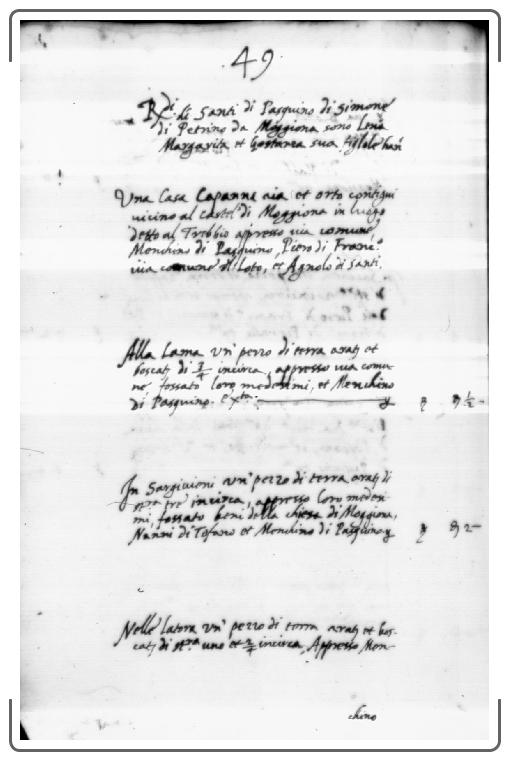 49
Rdi. di Santi di Pasquino di Simone
di Petrino da Moggiona sono Lena
Margarita et Gostanza sua figlole han
Una Casa Capanna aia et orto contigui
vicino al castel. di Moggiona in luogo
detto al Trebbio appresso via comune
Menchino di Pasquino, Piero di Franc.o
via comune di Loto, et Agnolo di Santi.
Alla Lama un' pezzo di terra aratj et
boscatj di 3/4 incirca, appresso via comu-
ne fossato loro medesimi, et Menchino
di Pasquino. et.
1/2
In Sargivioni un' pezzo di terra aratj di
tre incirca, appresso loro mede-
mi, fossato beni della chiesa di Moggiona,
Nanni di Tofano et Menchino di Pasquino
2
Nelle Latora un' pezzo di terra aratj et bos-
catj di st.ra uno et incirca, Appresso Men-
chino